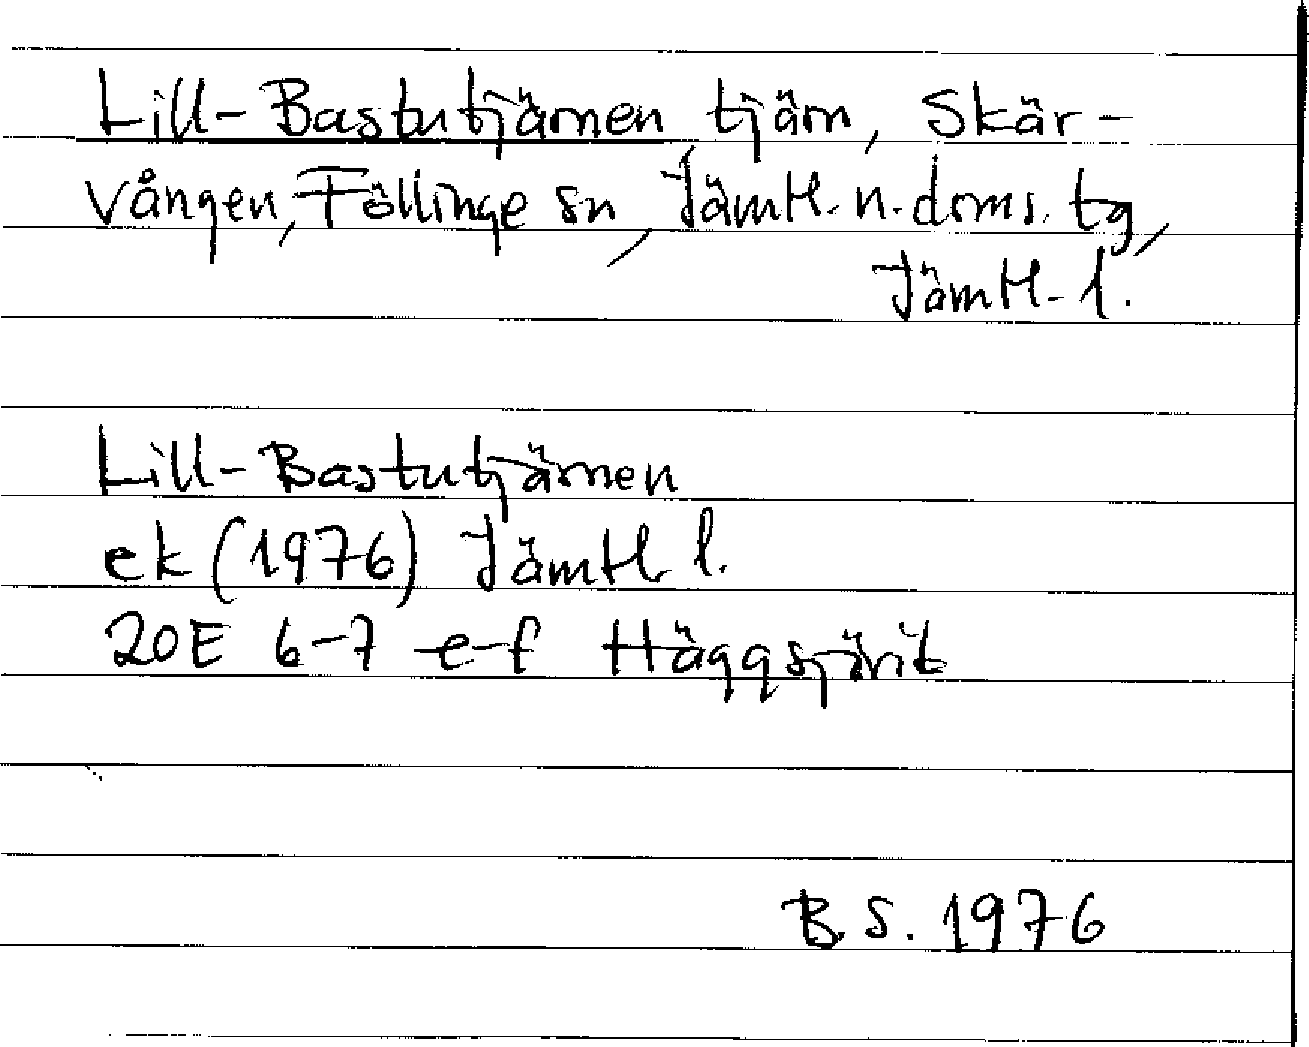 Lill-Bastutjärnen tjärn, Skär-
vången, Föllinge sn, Jämtl. n. doms. tg,
Jämtl. l.
Lill-Bastutjärnen
ek (1976) Jämtl. l.
20E 6-7 e-f
B.S. 1976